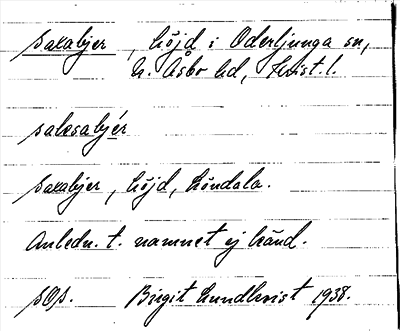 Saxabjer, höjd i Oderljunga sn,
N. Åsbo hd, Krist. l.
saksabjér
Saxabjer, höjd, Röndala.
Anledn. t. namnet ej känd.
SOS. Birgit Lundkvist 1938.